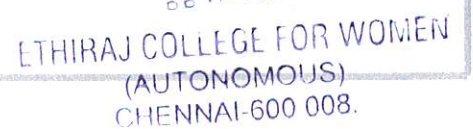 ETHIRAJ COLLEGE FOR WOMEN
(AUTONOMOUS)
CHENNAI-600 008.